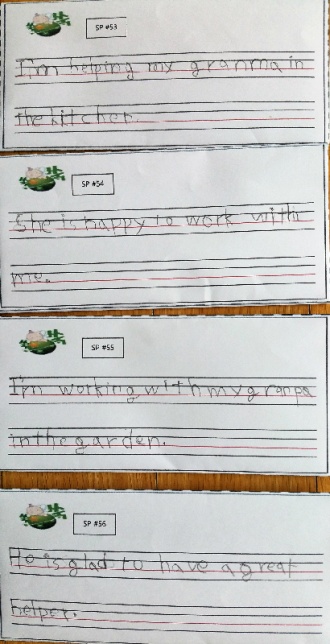 SP #53
I'm helping my granma in
the kitchen.
SP #54
She is happy to work with
me.
SP #55
I'm working with my granpa
in the garden.
SP #56
He is glad to have a great
helper.